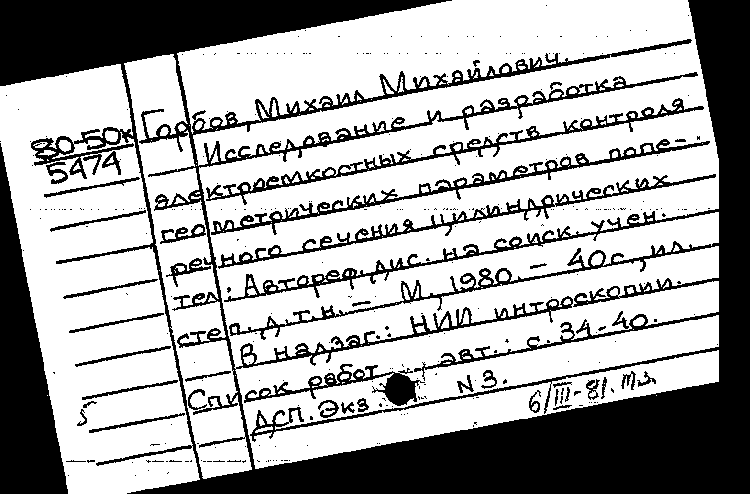 80-50к
5474
Горбов, Михаил Михайлович.
Исследование и разработка
электроемкостных средств контроля
геометрических параметров попе-
речного сечения цилиндрических
тел: Автореф. дис. на соиск. учен.
степ. д.т.н. – М., 1980. – 40с., ил.
В надзаг.: НИИ интроскопии.
Список работ авт.: с. 34-40.
ДСП. Экз. N 3.
6/III-81.
5